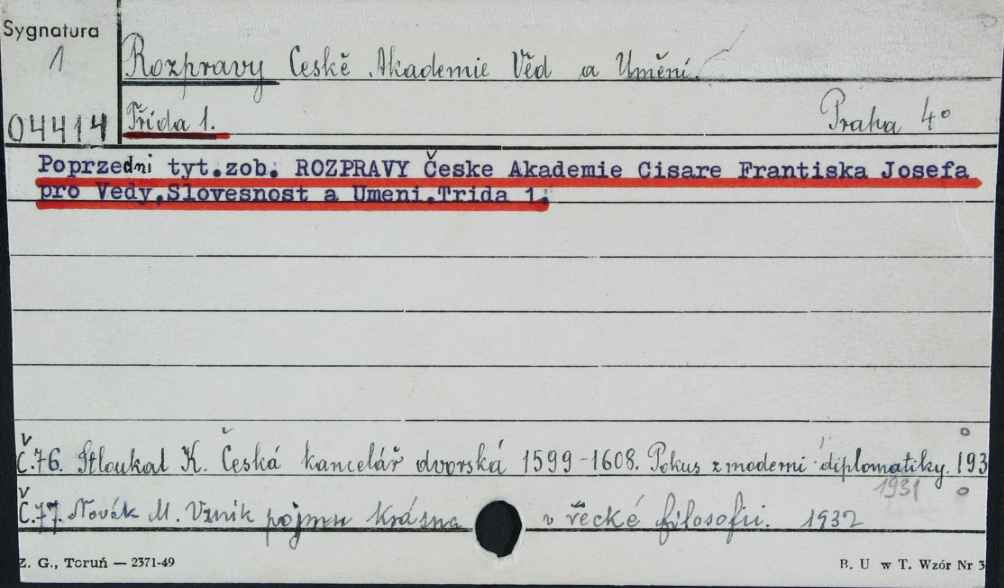 Sygnatura
1
04414
Rozpravy České Akademie Věd a Umění.
Třída 1.
Praha 4°
Poprzedni tyt.zob. ROZPRAVY Česke Akademie Cisare Frantiska Josefa
pro Vedy.Slovesnost a Umeni.Trida 1.
Č.76. Stloukal K. Česká kancelář dvorská 1599-1608. Pokus z moderní diplomatiky. 193
1931
Č.77. Novák M. Vznik pojmu krásna v řecké filosofii. 1932
Z. G., Toruń — 2371-49
B. U w T. Wzór Nr 3